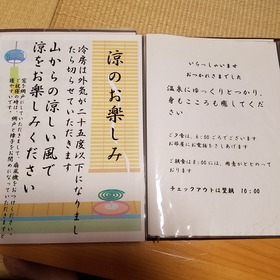 涼のお楽しみ
冷房は外気が二十五度以下になりまし
たら切らせていただきます
山からの涼しい風で
涼をお楽しみください
いらっしゃいませ
おつかれさまでした
温泉にゆっくりとつかり、
身もこころも癒してくだ
さい
ご夕食は、6:00ごろでございます
お部屋にお電話をさしあげます
ご朝食は8:00には、用意がととのって
おります
チェックアウトは翌朝 10:00